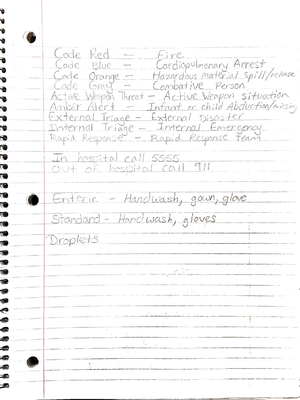 Code Red — Fire
Code Blue — Cardiopulmonary Arrest
Code Orange — Hazardous Material Spill/release
Code Gray — Combative Person
Active Weapon Threat — Active Weapon Situation
Amber Alert — Infant or child Abduction/missing
External Triage — External Disaster
Internal Triage — Internal Emergency
Rapid Response — Rapid Response Team
In hospital call 5555
Out of hospital call 911
Enteric — Handwash, gown, glove
Standard — Handwash, gloves
Droplets